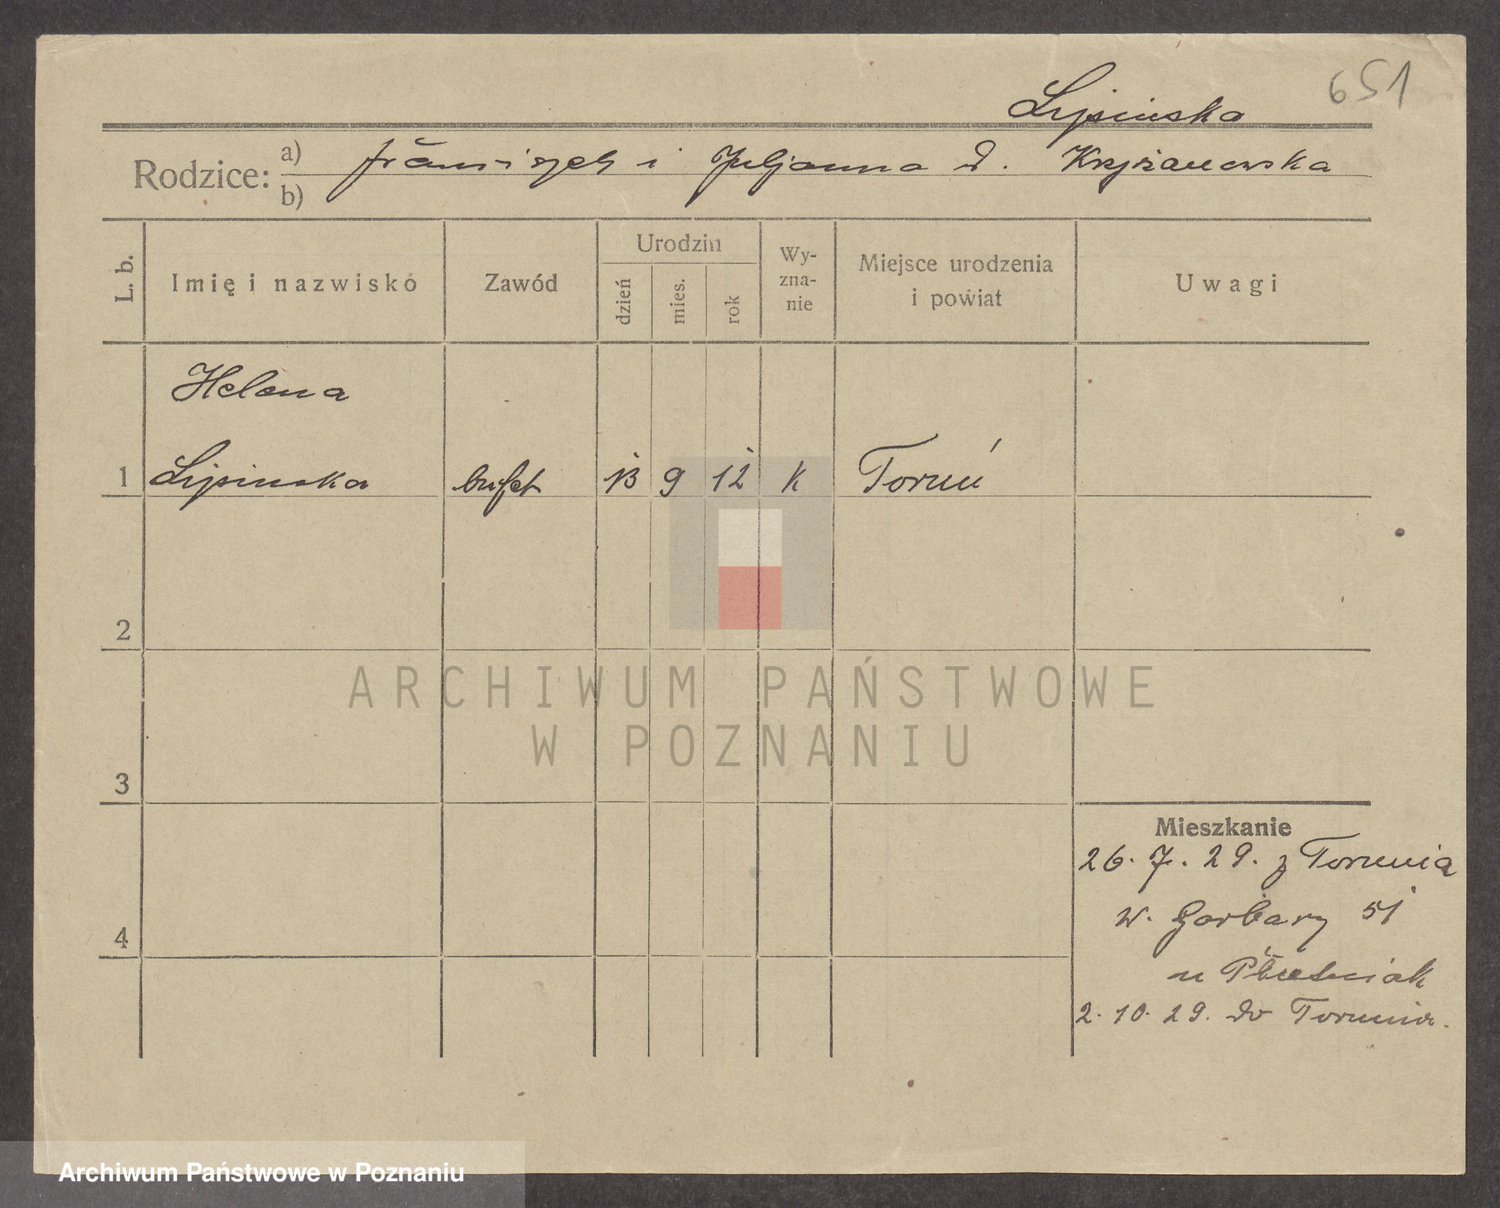 651
Lipińska
Rodzice: a) b) Franciszek i Juljanna d. Krzyżanowska
L. b. Imię i nazwisko Zawód Urodzin dzień mies. rok Wyznanie Miejsce urodzenia i powiat Uwagi
Helena
1 Lipinska bufet 13 9 12 k Toruń
2
ARCHIWUM PAŃSTWOWE
W POZNANIU
3
Mieszkanie
26. 7. 29. z Torunia
w. Garbary 51
4
u
2. 10. 29. do Torunia.
Archiwum Państwowe w Poznaniu